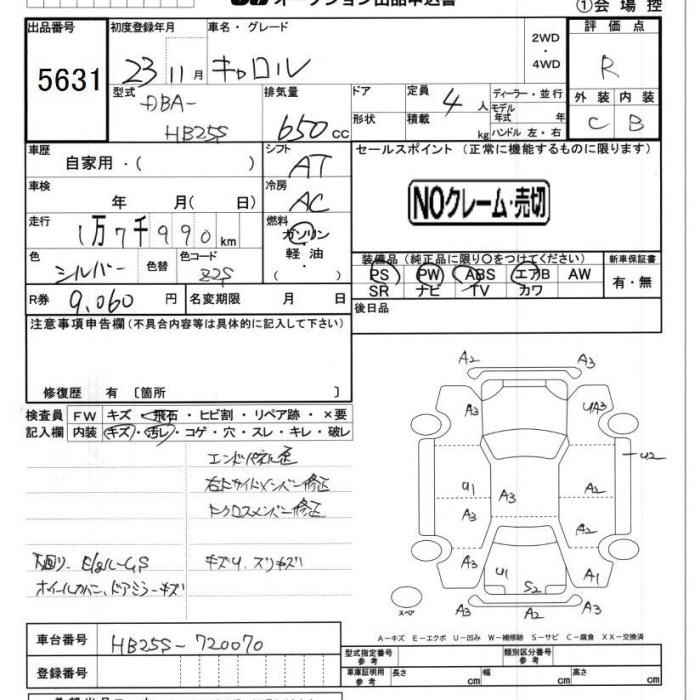 オークション出品申込書
①会場控
出品番号 初度登録年月 車名・グレード 評価点
5631 23 11月 キャロル 2WD・4WD R
型式 排気量 ドア 定員 4人 ディーラー・並行 外装 内装
DBA-HB25S 650cc 形状 積載 kg モデル年式 年 ハンドル 左・右 C B
車歴 シフト セールスポイント (正常に機能するものに限ります)
自家用・( ) AT
車検 冷房
年 月( 日) AC NOクレーム・売切
走行 燃料
1万7千990km ガソリン
色 色替 色コード 軽油 装備品 (純正品に限り○をつけてください) 新車保証書
シルバー Z2S ・( ) PS PW ABS エアB AW 有・無
SR ナビ TV カワ
R券 9,060円 名変期限 月 日 後日品
注意事項申告欄(不具合内容等は具体的に記入して下さい)
修復歴 有 〔箇所 〕
検査員 FW キズ・飛石・ヒビ割・リペア跡・×要
記入欄 内装 キズ・汚レ・コゲ・穴・スレ・キレ・破レ
エンドパネル歪
右リヤサイドメンバー修正
クロスメンバー修正
キズU、スリキズ
ホイールカバー、ドアミラーキズ
A2 A3
A3 UA3
U2
U1 A3 A2
A3 A2
A3 U1 S2 A1
A3 A2 A3
スペア
A-キズ E-エクボ U-凹み W-補修跡 S-サビ C-腐食 XX-交換済
車台番号 HB25S-720070
型式指定番号 参考 類別区分番号 参考
登録番号 車庫証明用 参考 長さ cm 幅 cm 高さ cm